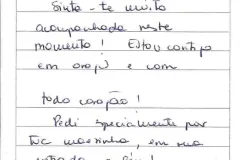 Sinta-te muito
acompanhada neste
momento! Estou contigo
em oração e com
todo coração!
Pedi especialmente por
mãezinha, em sua